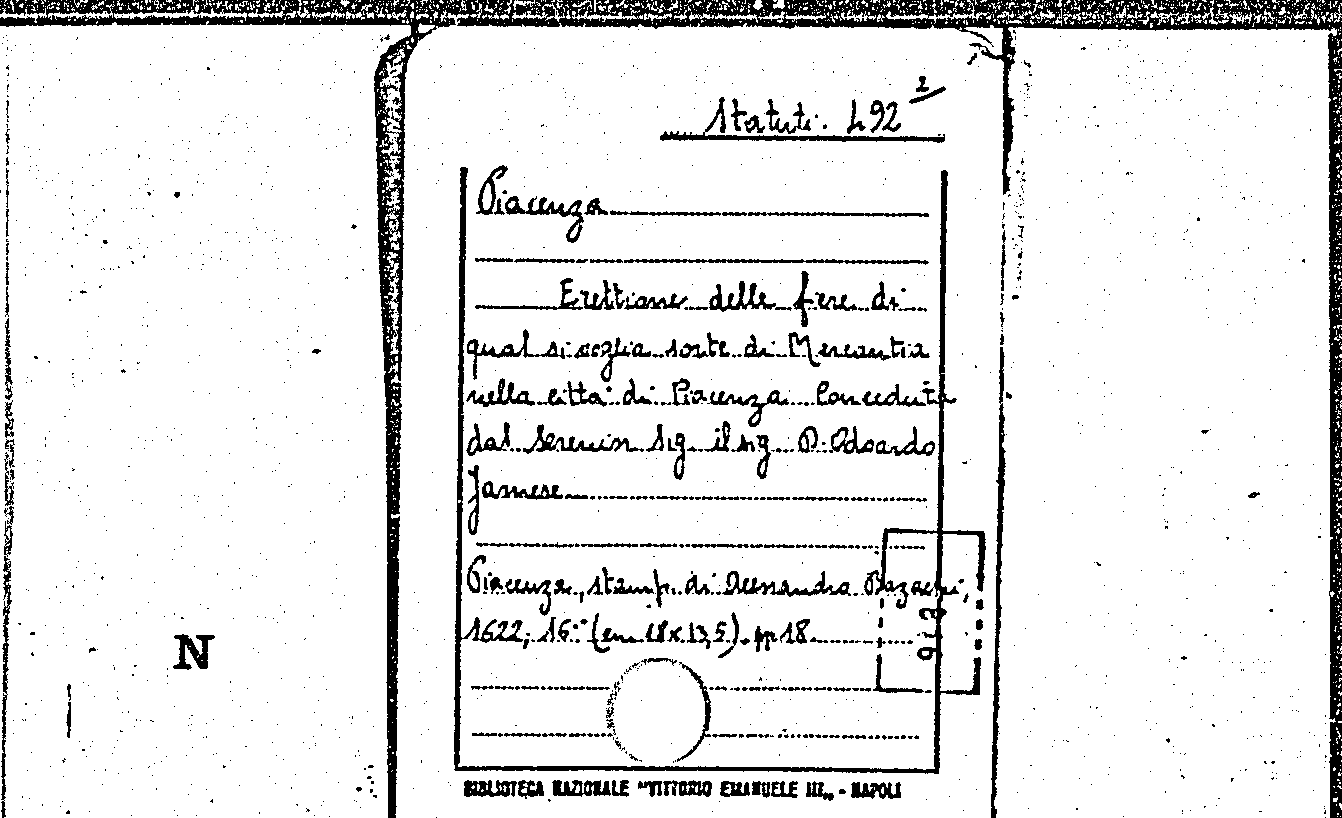 Statuti. 492 2
Piacenza
Erettione delle fiere di
qual si voglia sorte di Mercantia
nella città di Piacenza Conceduta
dal Serenin Sig. il sig D. Odoardo
Farnese
Piacenza, stamp. di Alessandro Bazachi,
1622, 16° (cm 18x13,5). pp 18.
N
BIBLIOTECA NAZIONALE "VITTORIO EMANUELE III„ - NAPOLI